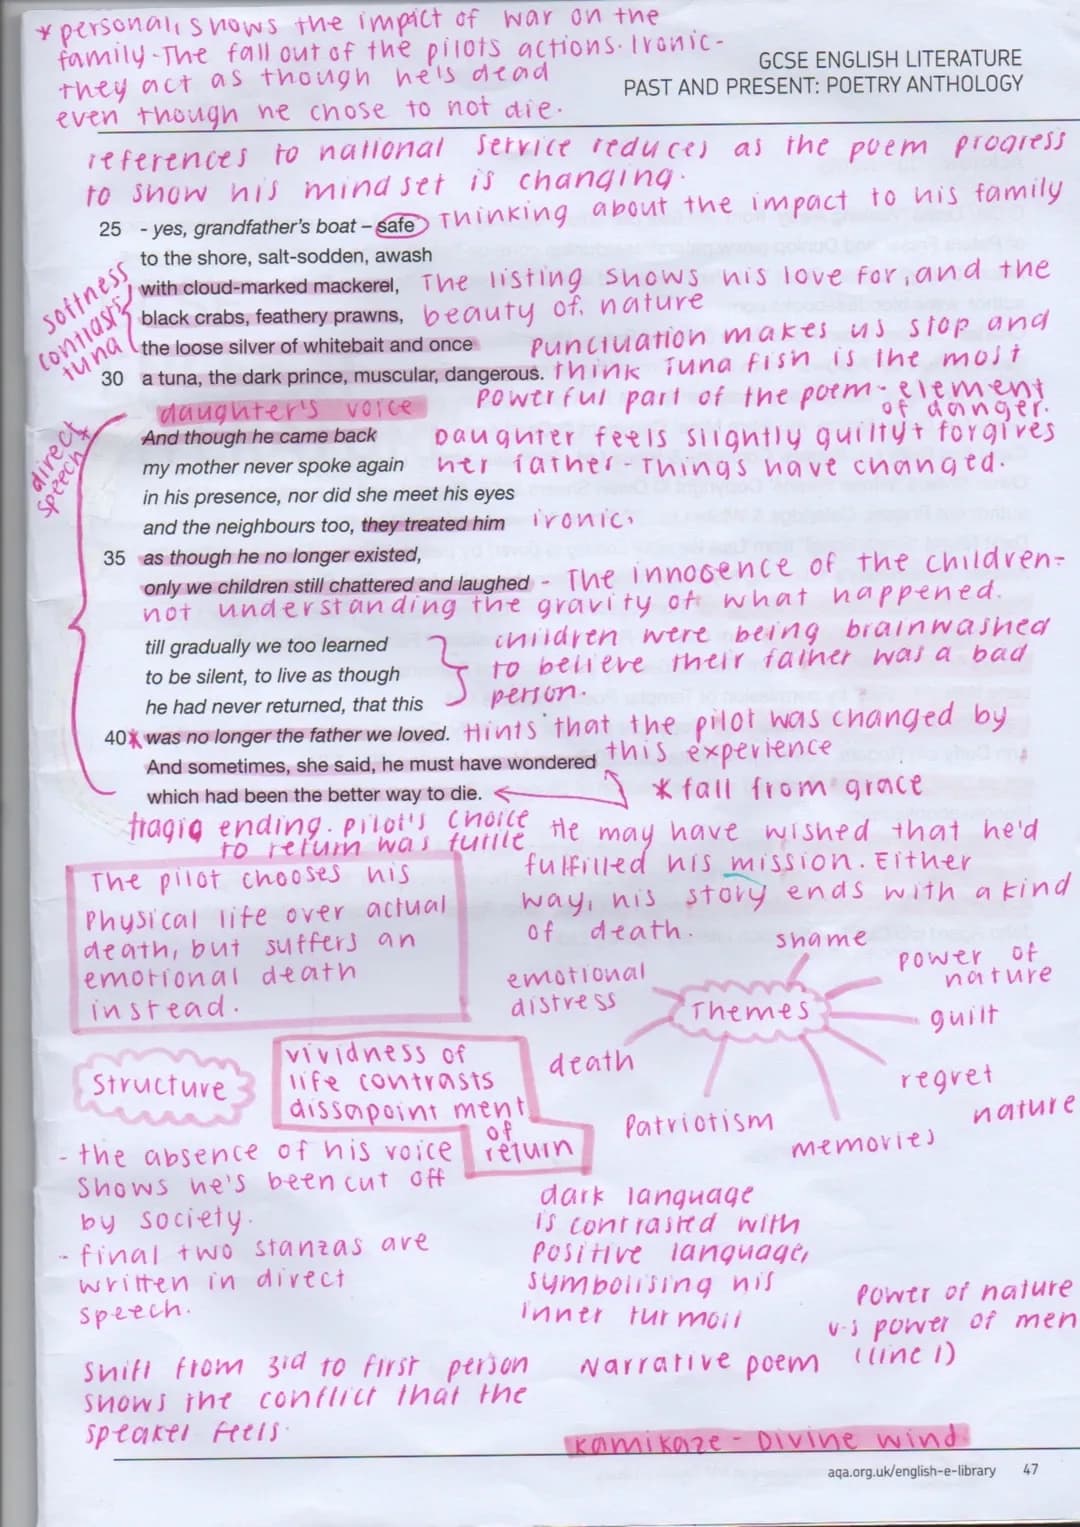 * personal, shows the impact of war on the
family - The fall out of the pilots actions. Ironic -
they act as though he's dead
even though he chose to not die.
GCSE ENGLISH LITERATURE
PAST AND PRESENT: POETRY ANTHOLOGY
references to national service reduces as the poem progress
to show his mind set is changing.
25 - yes, grandfather's boat – safe Thinking about the impact to his family
to the shore, salt-sodden, awash
with cloud-marked mackerel, The listing shows his love for, and the
black crabs, feathery prawns, beauty of, nature
softness
contrasts
tuna
the loose silver of whitebait and once Punctuation makes us stop and
30 a tuna, the dark prince, muscular, dangerous. think Tuna fish is the most
powerful part of the poem - element
of danger.
daughter's voice
direct
speech *
And though he came back Daughter feels slightly guilty + forgives
my mother never spoke again her father - Things have changed.
in his presence, nor did she meet his eyes
and the neighbours too, they treated him ironic,
35 as though he no longer existed,
only we children still chattered and laughed - The innocence of the children -
not understanding the gravity of what happened.
till gradually we too learned children were being brainwashed
to be silent, to live as though to believe their father was a bad
he had never returned, that this person.
40 * was no longer the father we loved. Hints that the pilot was changed by
this experience
And sometimes, she said, he must have wondered
which had been the better way to die. * fall from grace
tragic ending. pilot's choice
to return was futile
He may have wished that he'd
fulfilled his mission. Either
way, his story ends with a kind
of death.
The pilot chooses his
Physical life over actual
death, but suffers an
emotional death
instead.
Themes
shame
power of
nature
guilt
regret
nature
memories
Patriotism
death
emotional
distress
Structure
vividness of
life contrasts
dissapointment
of
return
- the absence of his voice
shows he's been cut off
by society.
- final two stanzas are
written in direct
speech.
dark language
is contrasted with
positive language,
symbolising his
inner turmoil
Power of nature
v-s power of men
(line 1)
shift from 3rd to first person
shows the conflict that the
speaker feels.
Narrative poem
Kamikaze - Divine wind
aqa.org.uk/english-e-library 47